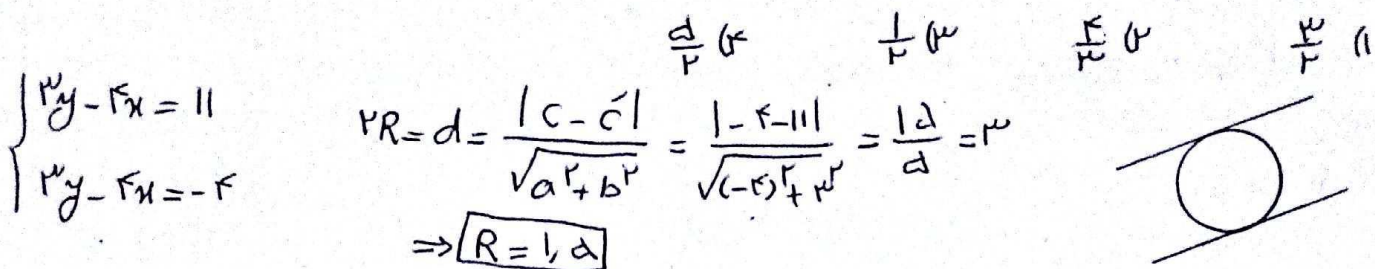 ۱) ۳/۲ ۲) ۴/۳ ۳) ۱/۲ ۴) ۵/۲
۳y - ۴x = ۱۱
۳y - ۴x = -۴
۲R = d = |c - c'| / √(a^۲ + b^۲) = |-۴ - ۱۱| / √((-۴)^۲ + ۳^۲) = ۱۵/۵ = ۳
⇒ R = ۱,۵